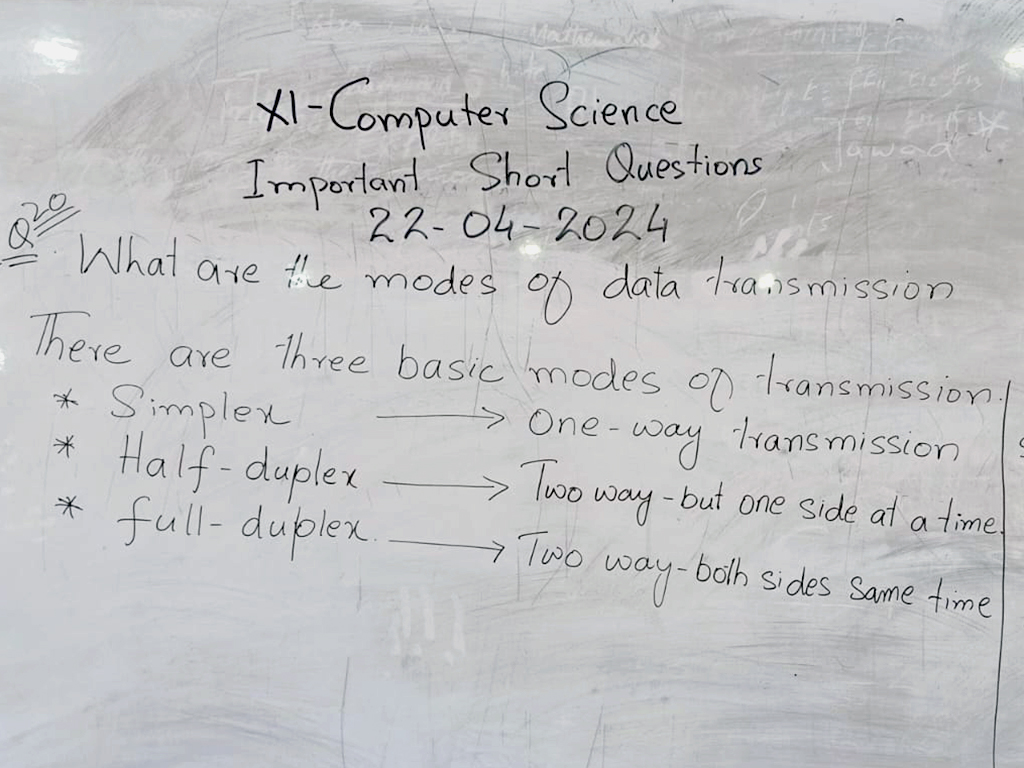 XI-Computer Science
Important Short Questions
22-04-2024
Q20 What are the modes of data transmission
There are three basic modes of transmission.
* Simplex → One-way transmission
* Half-duplex → Two way-but one side at a time.
* full-duplex. → Two way-both sides same time
Jawad